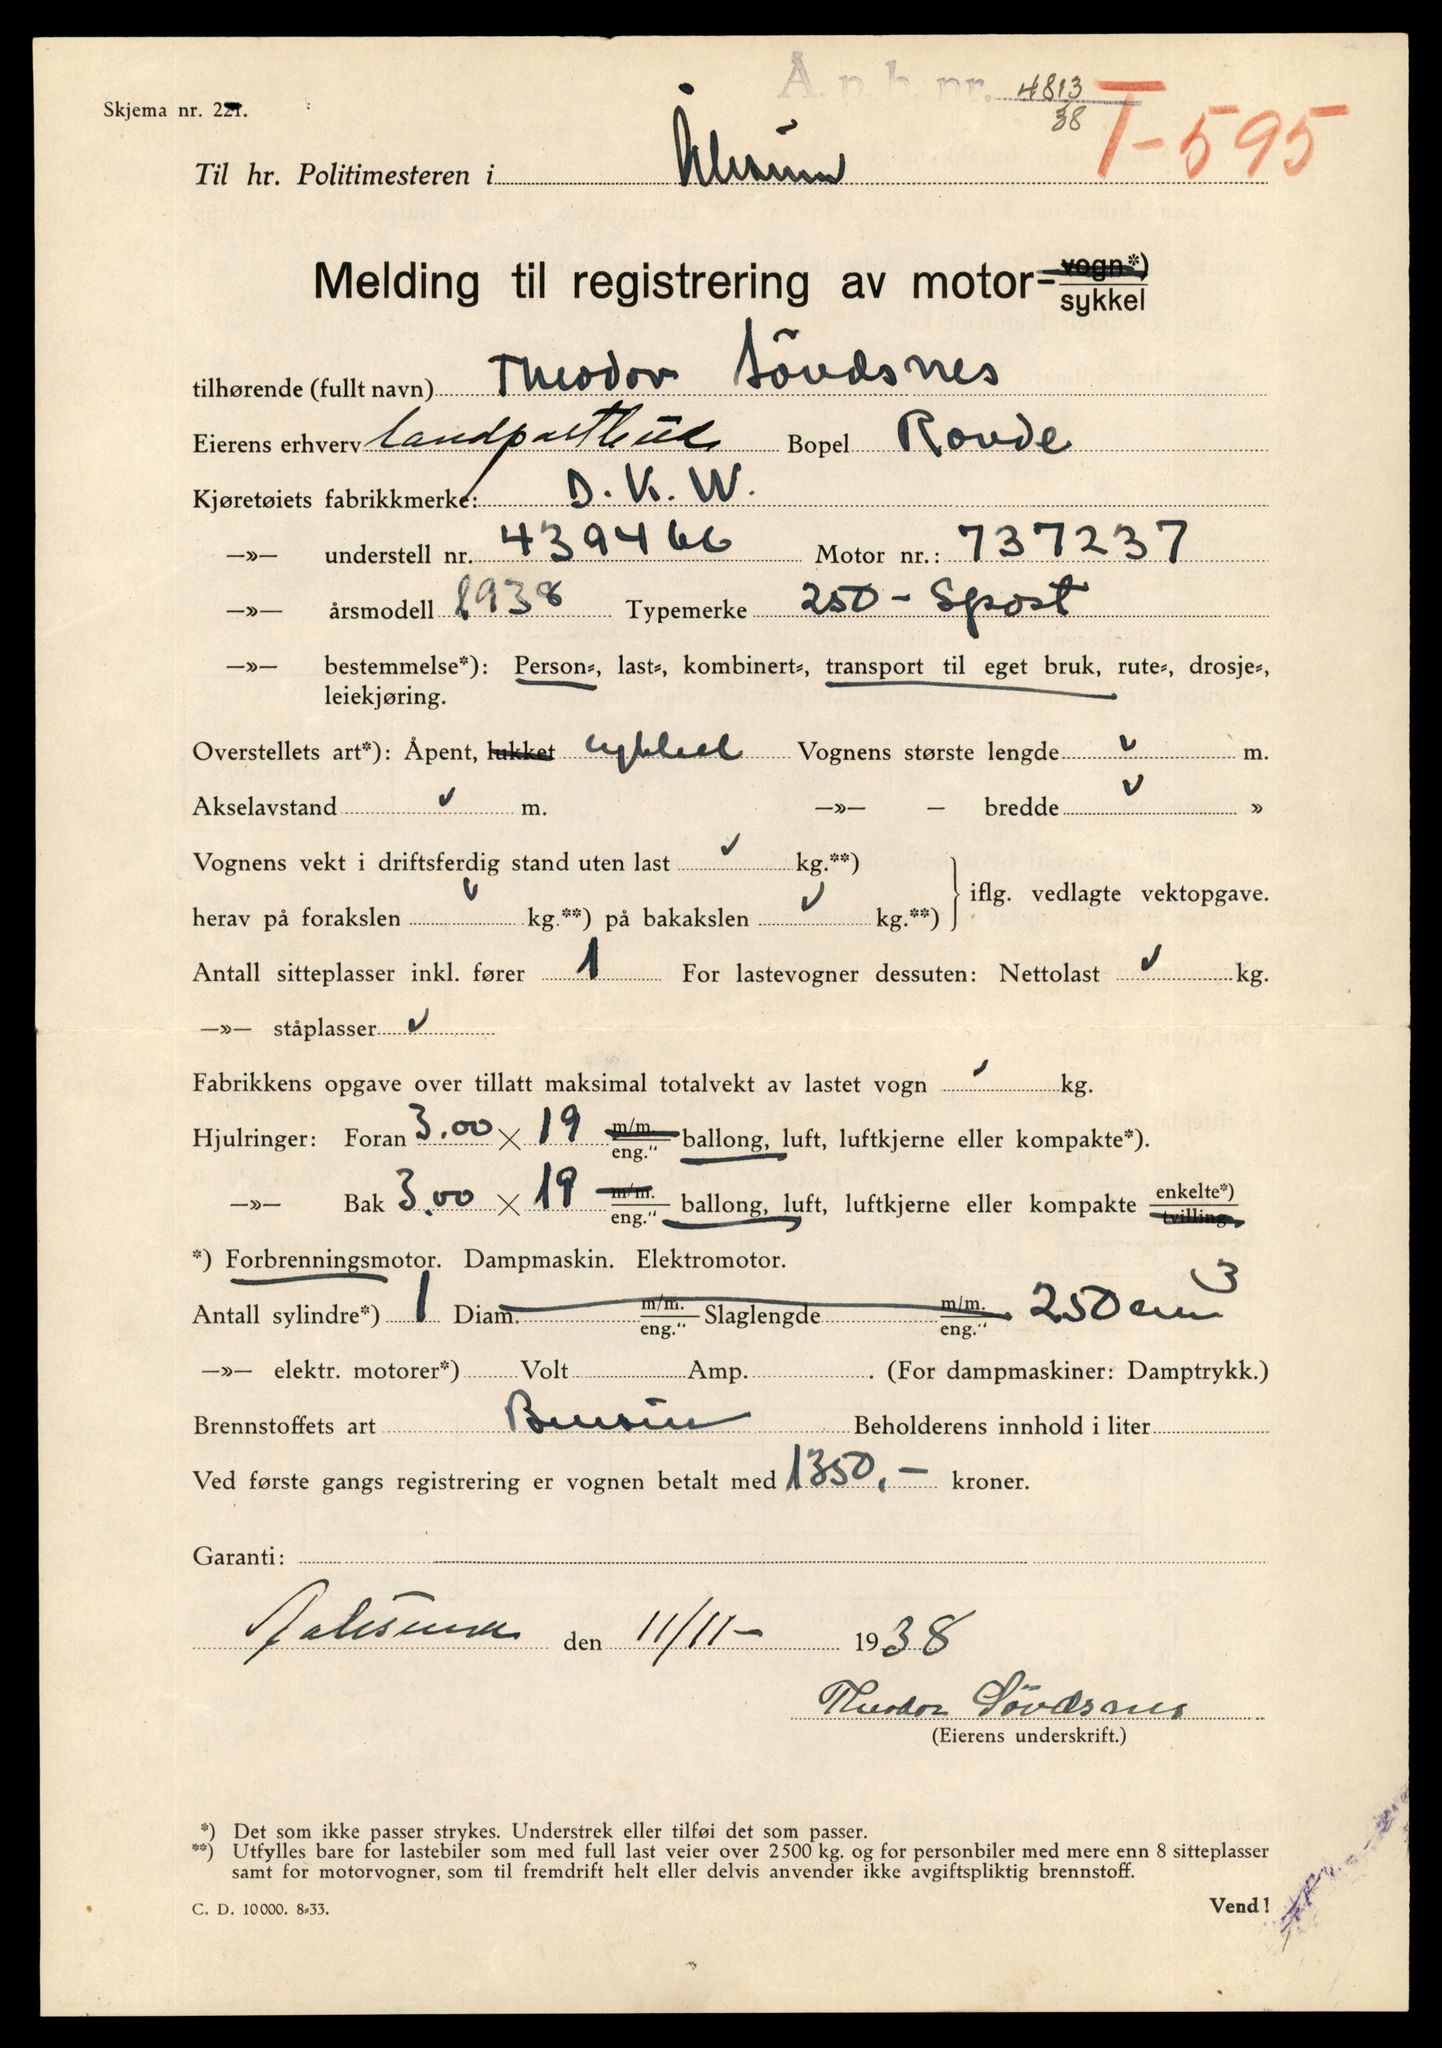 Å. p. k. nr. 4813/38
T-595
Skjema nr. 221.
Til hr. Politimesteren i Ålesund
Melding til registrering av motor= vogn*) / sykkel
tilhørende (fullt navn) Theodor Sövdsnes
Eierens erhverv landpostbud Bopel Rovde
Kjøretøiets fabrikkmerke: D.K.W.
—»— understell nr. 439466 Motor nr.: 737237
—»— årsmodell 1938 Typemerke 250 - Sport
—»— bestemmelse*): Person=, last=, kombinert=, transport til eget bruk, rute=, drosje=,
leiekjøring.
Overstellets art*): Åpent, lukket sykkel Vognens største lengde v m.
Akselavstand v m. —»— — bredde v »
Vognens vekt i driftsferdig stand uten last v kg.**)
herav på forakslen v kg.**) på bakakslen v kg.**) iflg. vedlagte vektopgave.
Antall sitteplasser inkl. fører 1 For lastevogner dessuten: Nettolast v kg.
—»— ståplasser v
Fabrikkens opgave over tillatt maksimal totalvekt av lastet vogn v kg.
Hjulringer: Foran 3.00 × 19 m/m. / eng." ballong, luft, luftkjerne eller kompakte*).
—»— Bak 3.00 × 19 m/m. / eng." ballong, luft, luftkjerne eller kompakte enkelte*) / tvilling.
*) Forbrenningsmotor. Dampmaskin. Elektromotor.
Antall sylindre*) 1 Diam. m/m. / eng." Slaglengde m/m. / eng." 250 cm3
—»— elektr. motorer*) Volt Amp. . (For dampmaskiner: Damptrykk.)
Brennstoffets art Bensin Beholderens innhold i liter
Ved første gangs registrering er vognen betalt med 1350,- kroner.
Garanti:
Aalesund den 11/11- 1938
Theodor Sövdsnes
(Eierens underskrift.)
*) Det som ikke passer strykes. Understrek eller tilføi det som passer.
**) Utfylles bare for lastebiler som med full last veier over 2500 kg. og for personbiler med mere enn 8 sitteplasser
samt for motorvogner, som til fremdrift helt eller delvis anvender ikke avgiftspliktig brennstoff.
C. D. 10000. 8=33.
Vend!